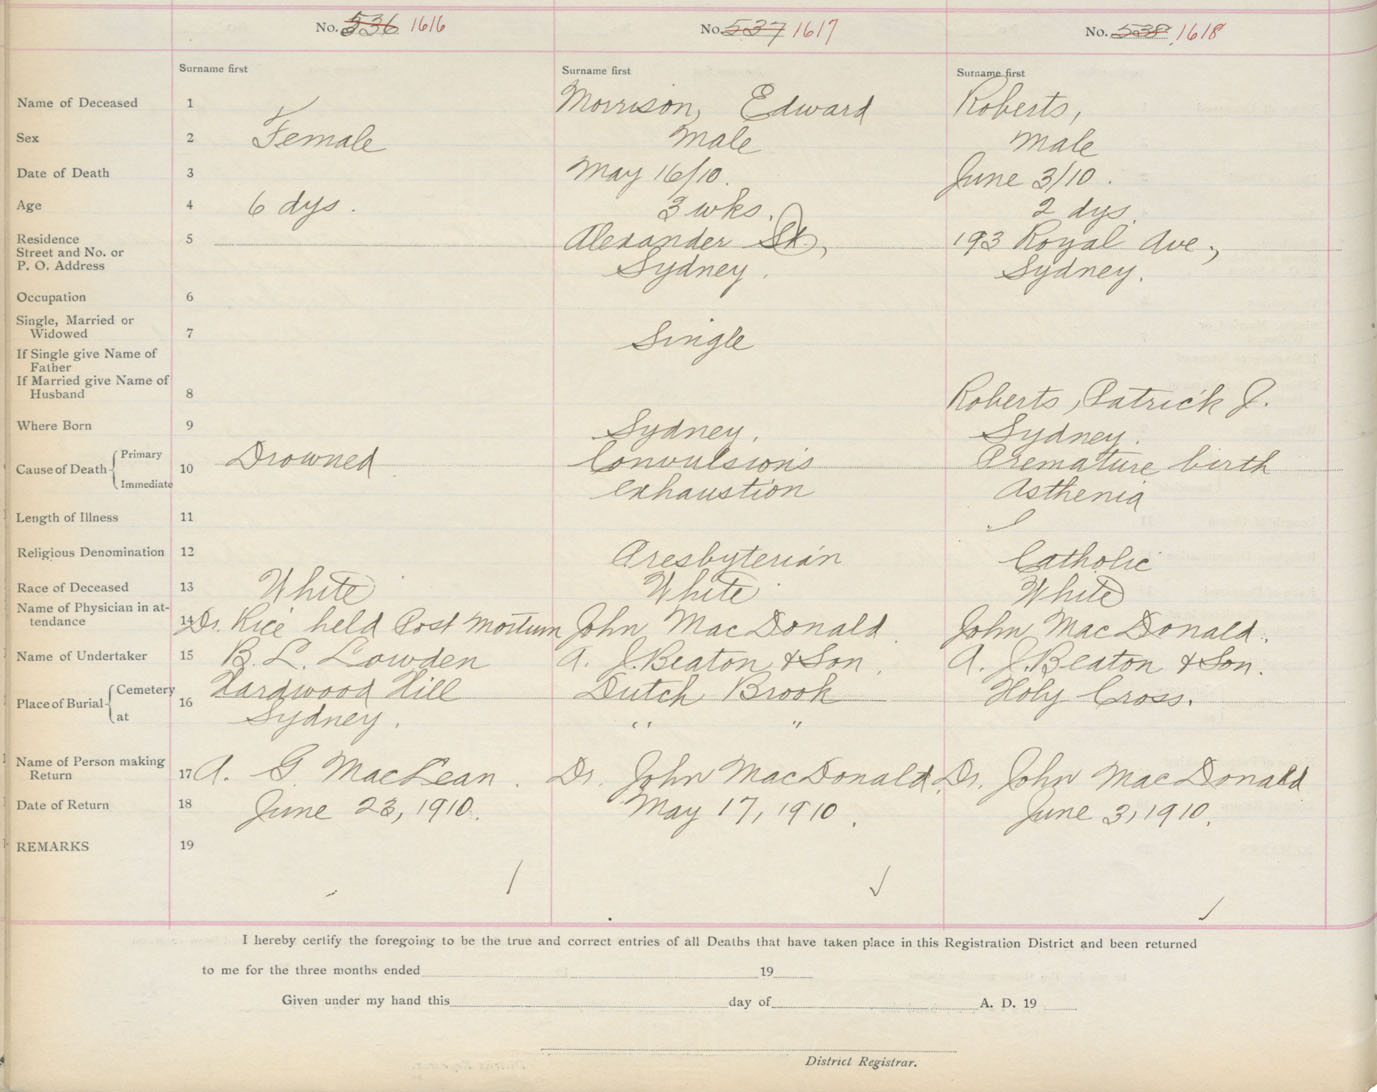 No. 536 1616 No. 537 1617 No. 538 1618
Surname first Surname first Surname first
Name of Deceased 1 Morrison, Edward Roberts,
Sex 2 Female Male Male
Date of Death 3 May 16/10. June 3/10.
Age 4 6 dys. 3 wks. 2 dys.
Residence 5 Alexander St., 193 Royal Ave.,
Street and No. or
P. O. Address Sydney. Sydney.
Occupation 6
Single, Married or
Widowed 7 Single
If Single give Name of
Father
If Married give Name of
Husband 8 Roberts, Patrick J.
Where Born 9 Sydney. Sydney.
Cause of Death Primary 10 Drowned Convulsions Premature birth
Immediate exhaustion Asthenia
Length of Illness 11
Religious Denomination 12 Presbyterian Catholic
Race of Deceased 13 White White White
Name of Physician in at-
tendance 14 Dr. Rice held Post Mortum John MacDonald. John MacDonald.
Name of Undertaker 15 B. L. Lowden A. J. Beaton & Son. A. J. Beaton & Son.
Place of Burial Cemetery 16 Hardwood Hill Dutch Brook Holy Cross.
at Sydney. " "
Name of Person making
Return 17 A. G MacLean. Dr. John MacDonald. Dr. John MacDonald
Date of Return 18 June 23, 1910. May 17, 1910. June 3, 1910.
REMARKS 19
I hereby certify the foregoing to be the true and correct entries of all Deaths that have taken place in this Registration District and been returned
to me for the three months ended 19
Given under my hand this day of A. D. 19
District Registrar.